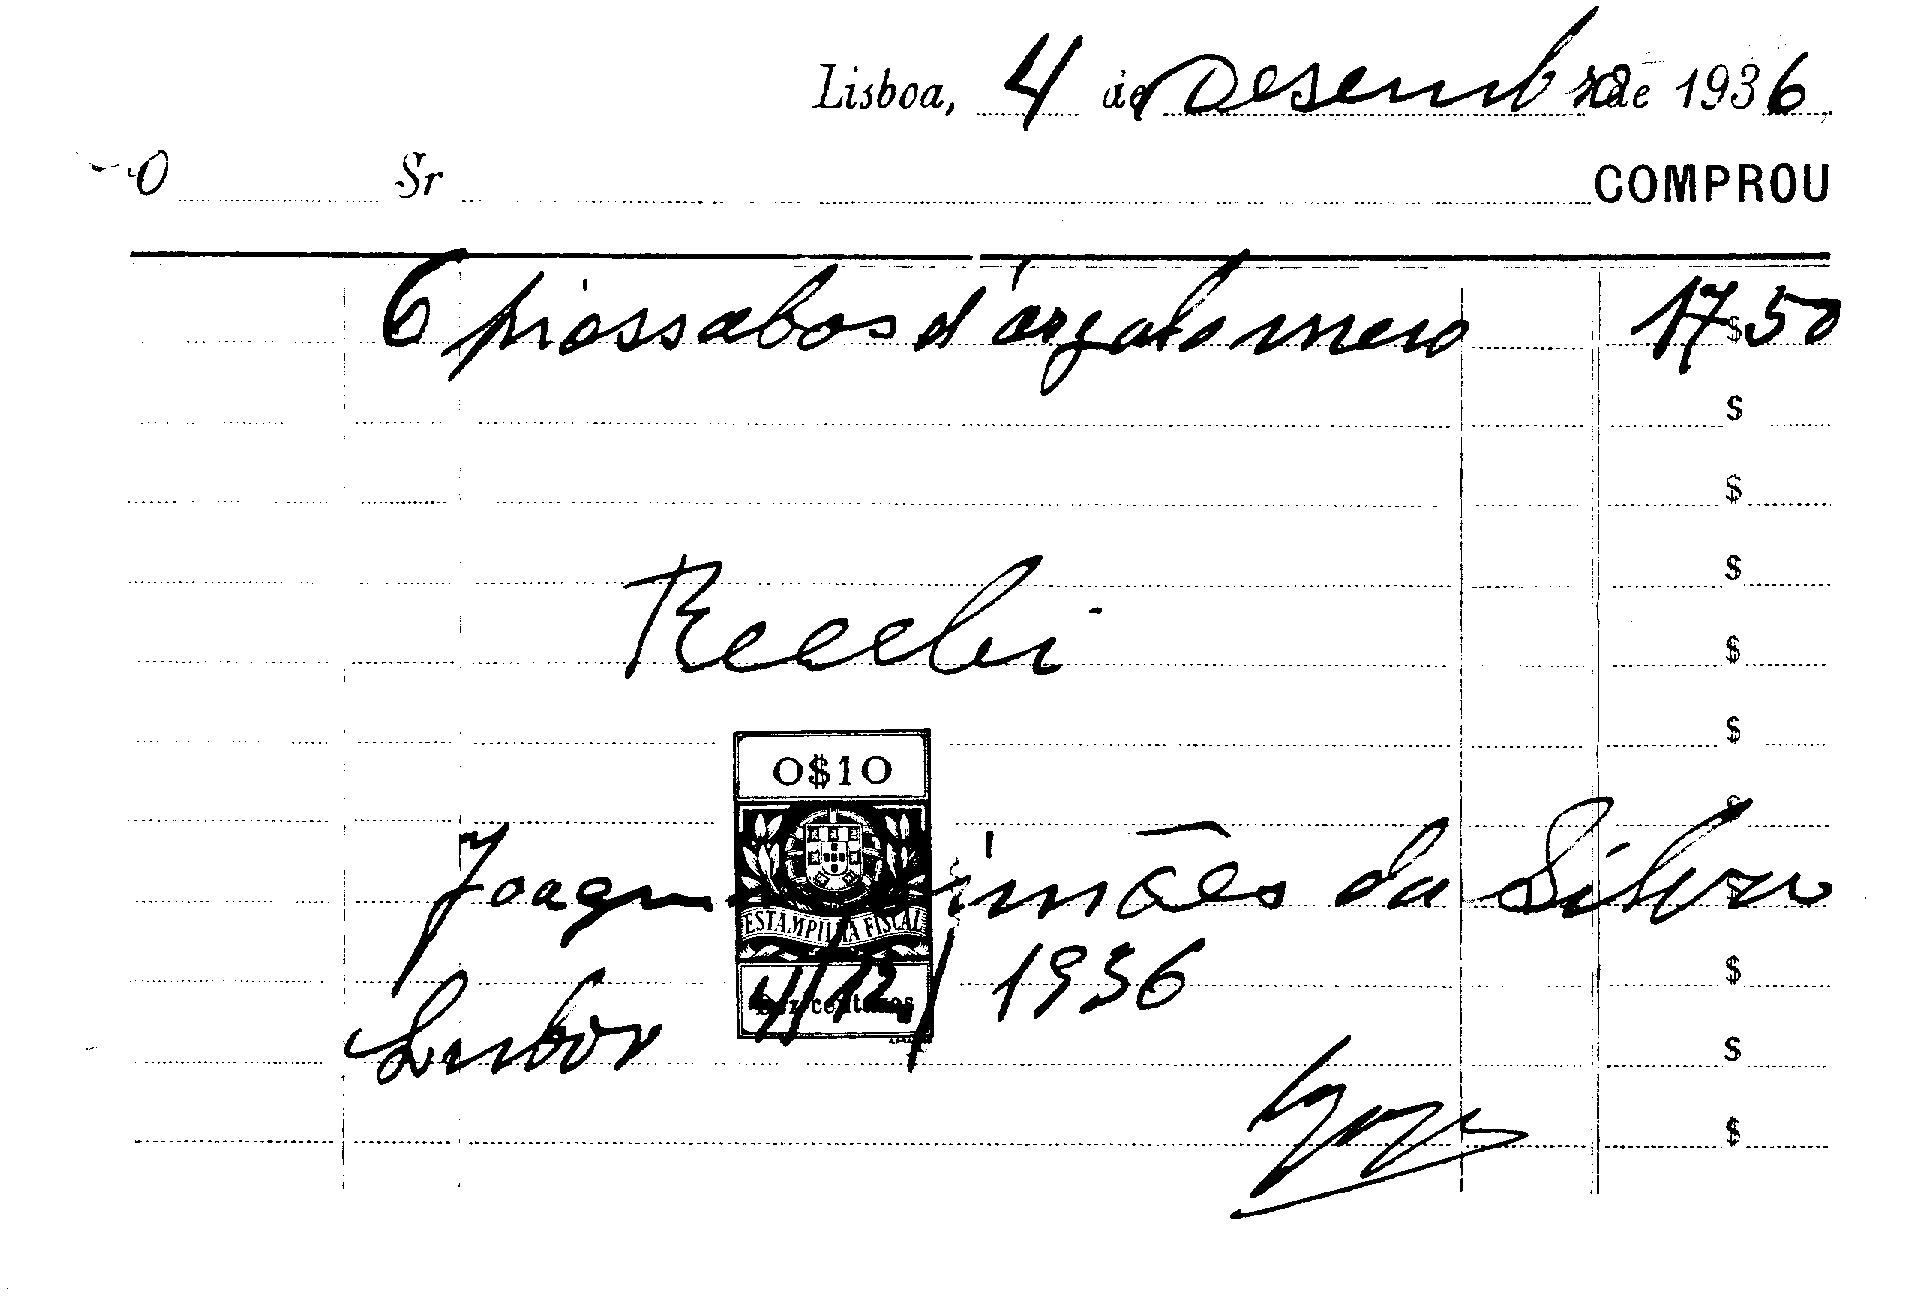 Lisboa, 4 de Desembro de 1936
O Sr COMPROU
6 piassabas d'argalo meio 17$50
$
$
$
Recebi
$
$
0$10
$
Joaquim Simões da Silva
ESTAMPILHA FISCAL
$
Lisboa 4/12/1936
Dez centavos
$
$